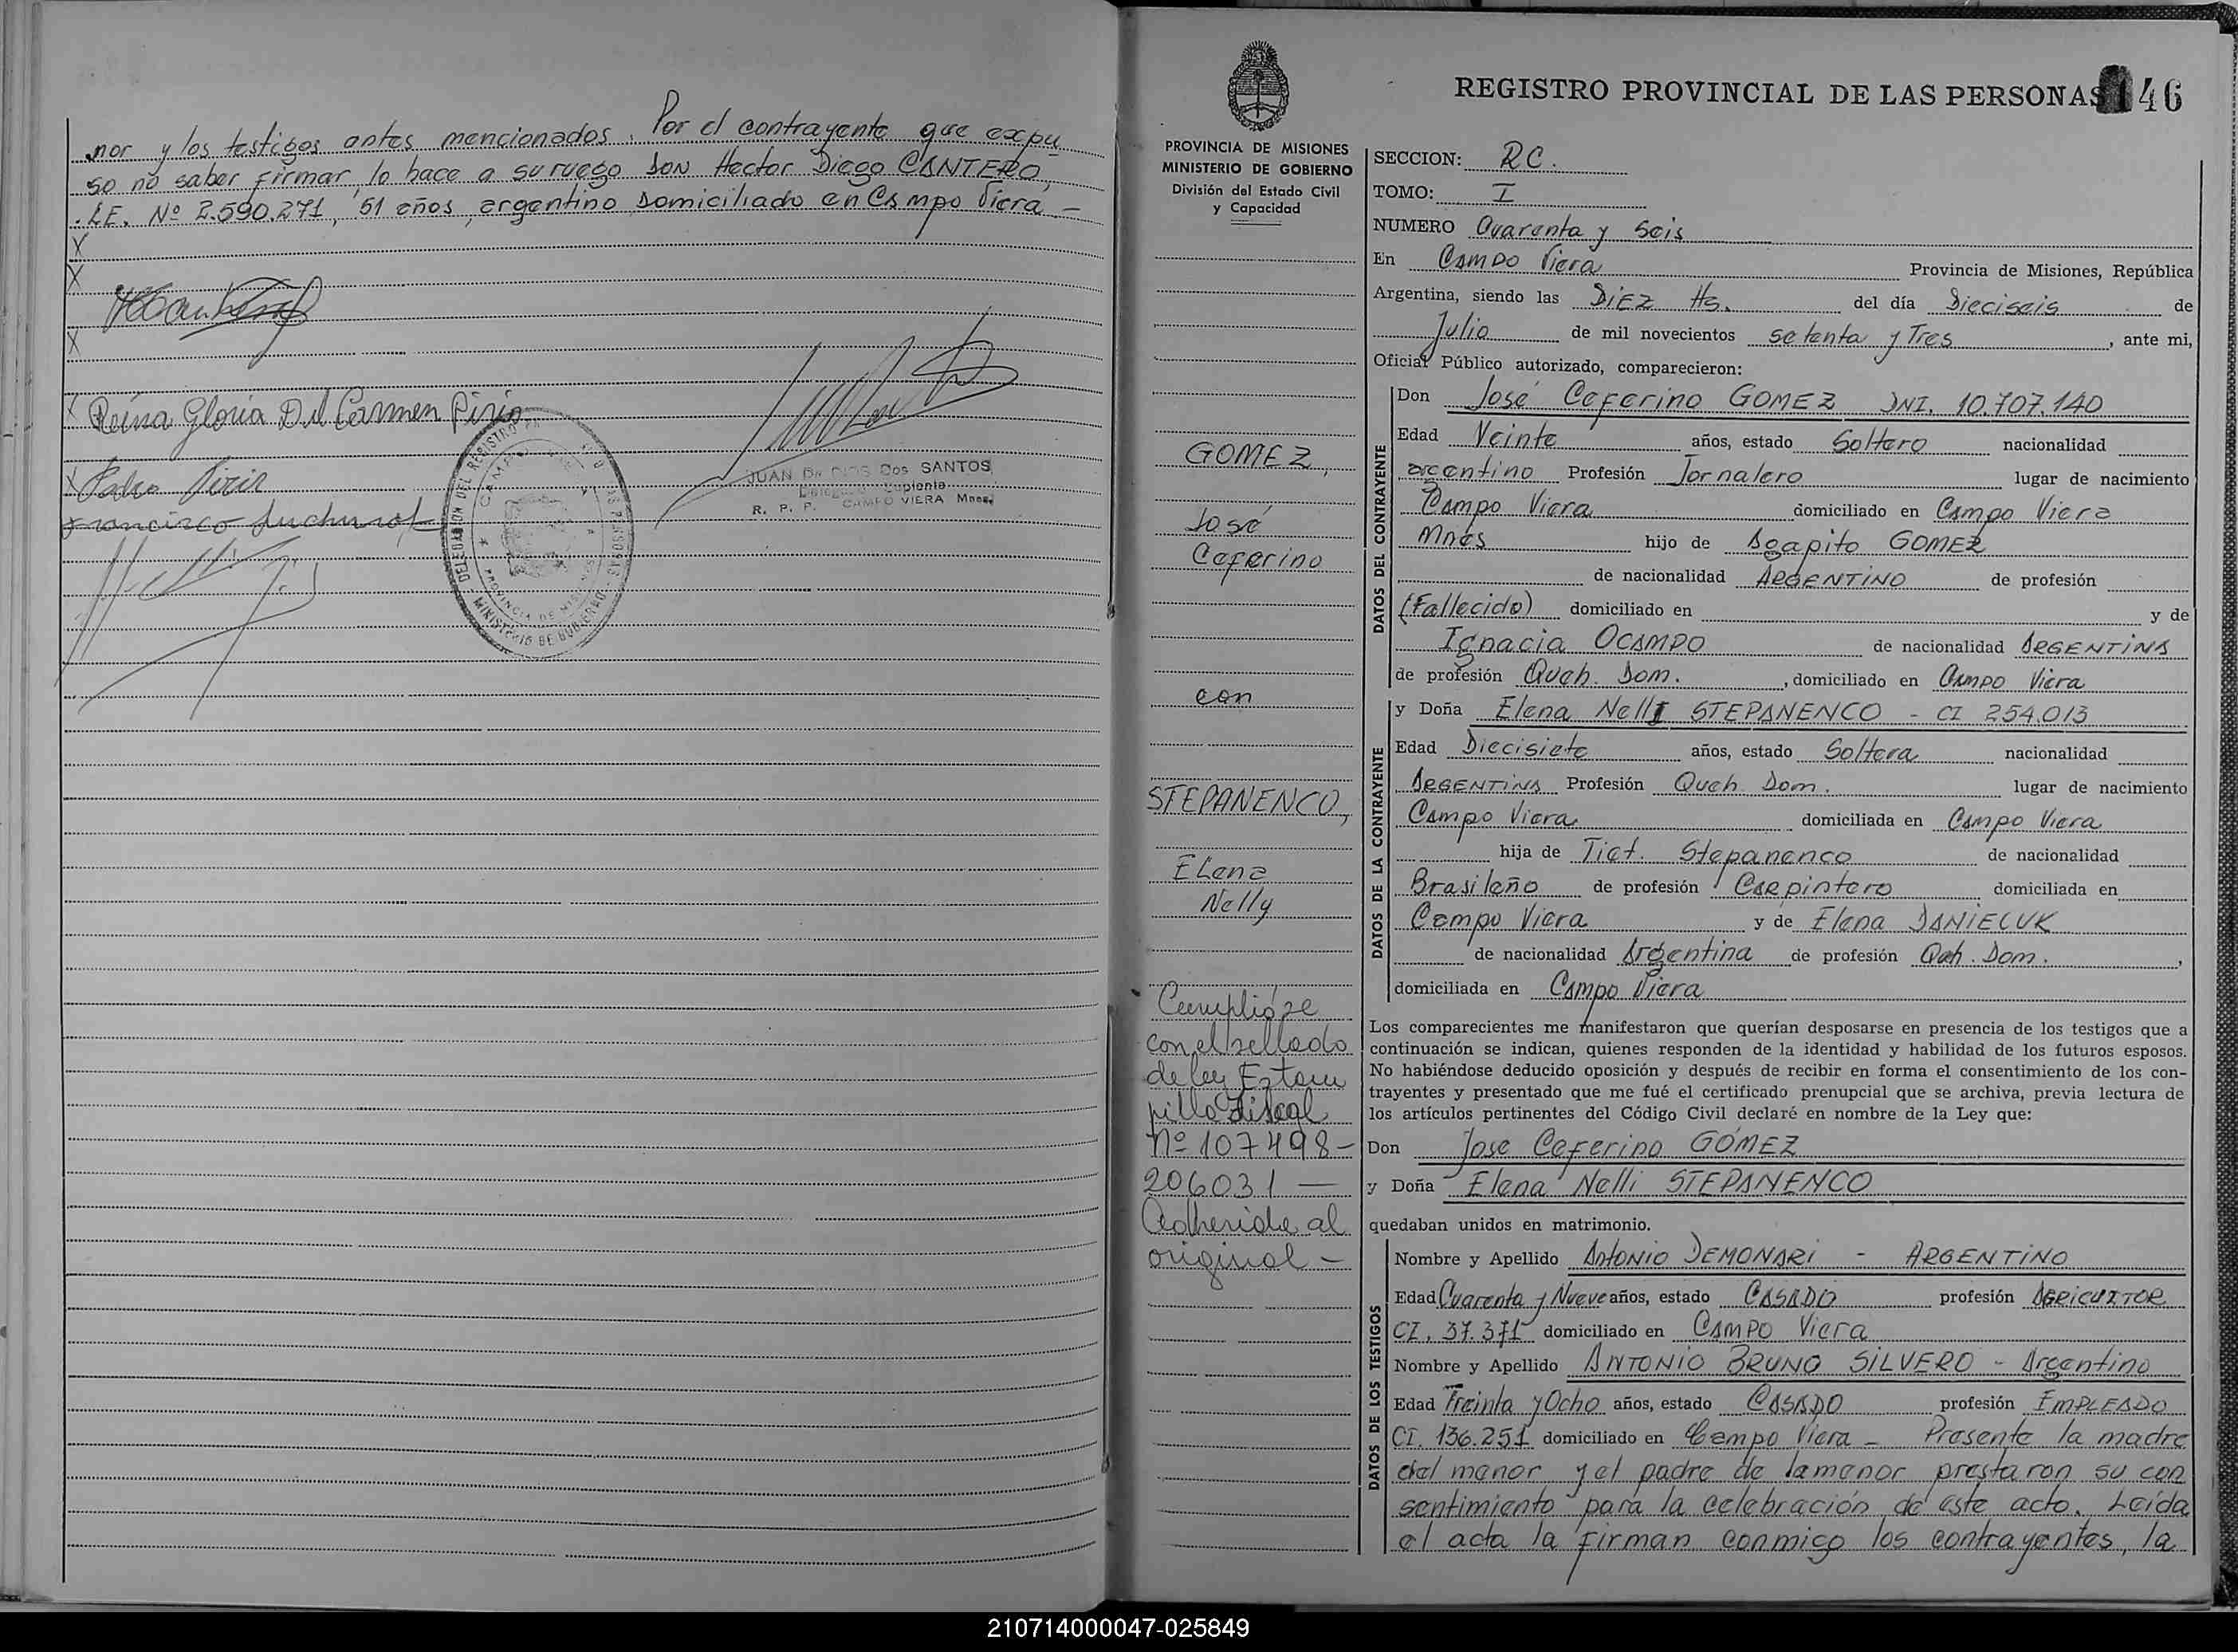 nor y los testigos antes mencionados. Por el contrayente que expu
so no saber firmar, lo hace a su ruego Don Hector Diego CANTERO,
LE. Nº 2.590.271, 51 años, argentino domiciliado en Campo Viera -
X
X
X
X Reina Gloria Del Carmen Piris
X Pedro Piris
Francisco
JUAN DE DIOS Dos SANTOS
Delegado Suplente
R. P. P. CAMPO VIERA Mnes.
DELEGACION DEL REGISTRO PROVINCIAL DE LAS PERSONAS
CAMPO VIERA
PROVINCIA DE MISIONES
MINISTERIO DE GOBIERNO
REGISTRO PROVINCIAL DE LAS PERSONAS 46
PROVINCIA DE MISIONES
MINISTERIO DE GOBIERNO
División del Estado Civil
y Capacidad
GOMEZ,
José
Ceferino
con
STEPANENCO,
Elena
Nelly
Cumplióse
con el sellado
de ley Estam
pilla Fiscal
Nº 107498-
206031 —
Adherida al
original -
SECCION: RC.
TOMO: I
NUMERO Cuarenta y Seis
En Campo Viera Provincia de Misiones, República
Argentina, siendo las DIEZ Hs. del día Dieciseis de
Julio de mil novecientos setenta y Tres, ante mi,
Oficial Público autorizado, comparecieron:
DATOS DEL CONTRAYENTE
Don José Ceferino GOMEZ DNI. 10.707.140
Edad Veinte años, estado Soltero nacionalidad
argentino Profesión Jornalero lugar de nacimiento
Campo Viera domiciliado en Campo Viera
Mnes hijo de Agapito GOMEZ
de nacionalidad ARGENTINO de profesión
(Fallecido) domiciliado en y de
Ignacia OCAMPO de nacionalidad ARGENTINA
de profesión Queh. Dom., domiciliado en Campo Viera
DATOS DE LA CONTRAYENTE
y Doña Elena Nelli STEPANENCO - CI 254.013
Edad Diecisiete años, estado Soltera nacionalidad
ARGENTINA Profesión Queh. Dom. lugar de nacimiento
Campo Viera domiciliada en Campo Viera
hija de Tict. Stepanenco de nacionalidad
Brasileño de profesión Carpintero domiciliada en
Campo Viera y de Elena DANIELUK
de nacionalidad Argentina de profesión Qeh. Dom.,
domiciliada en Campo Viera
Los comparecientes me manifestaron que querían desposarse en presencia de los testigos que a
continuación se indican, quienes responden de la identidad y habilidad de los futuros esposos.
No habiéndose deducido oposición y después de recibir en forma el consentimiento de los con-
trayentes y presentado que me fué el certificado prenupcial que se archiva, previa lectura de
los artículos pertinentes del Código Civil declaré en nombre de la Ley que:
Don Jose Ceferino GÓMEZ
y Doña Elena Nelli STEPANENCO
quedaban unidos en matrimonio.
DATOS DE LOS TESTIGOS
Nombre y Apellido Antonio DEMONARI - ARGENTINO
Edad Cuarenta y Nueve años, estado CASADO profesión AGRICULTOR
CI. 37.371 domiciliado en CAMPO Viera
Nombre y Apellido ANTONIO BRUNO SILVERO - Argentino
Edad Treinta y Ocho años, estado CASADO profesión EMPLEADO
CI. 136.251 domiciliado en Campo Viera - Presente la madre
del menor y el padre de la menor prestaron su con
sentimiento para la celebración de este acto. Leída
el acta la firman conmigo los contrayentes, la
210714000047-025849